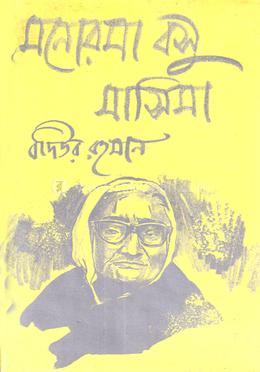 মনোরমা বসু
মাসিমা
বদিউর রহমান